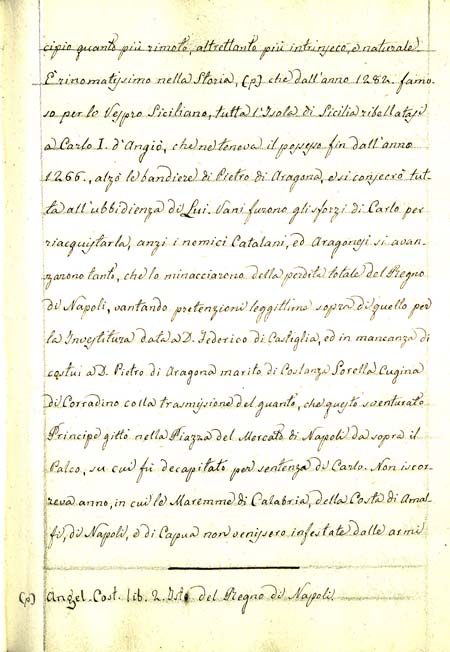 cipio quanto più rimoto, altrettanto più intrinseco, e naturale.
È rinomatissimo nella Storia, (p) che dall'anno 1282. famo-
so per lo Vespro Siciliano, tutta l'Isola di Sicilia ribellatasi
a Carlo I. d'Angiò, che ne teneva il possesso fin dall'anno
1266., alzò le bandiere di Pietro di Aragona, e si consecrò tut-
ta all'ubbidienza di Lui. Vani furono gli sforzi di Carlo per
riacquistarla, anzi i nemici Catalani, ed Aragonesi si avan-
zarono tanto, che lo minacciarono della perdita totale del Regno
di Napoli, vantando pretenzioni leggittime sopra di quello per
la Investitura data a D. Federico di Castiglia, ed in mancanza di
costui a D. Pietro di Aragona marito di Costanza Sorella Cugina
di Corradino colla trasmissione del guanto, che questo sventurato
Principe gittò nella Piazza del Mercato di Napoli da sopra il
Palco, su cui fù decapitato per sentenza di Carlo. Non iscor-
reva anno, in cui le Maremme di Calabria, della Costa di Amal-
fi, di Napoli, e di Capua non venissero infestate dalle armi
(p) Angel. Cost. lib. 2. Ist. del Regno di Napoli.